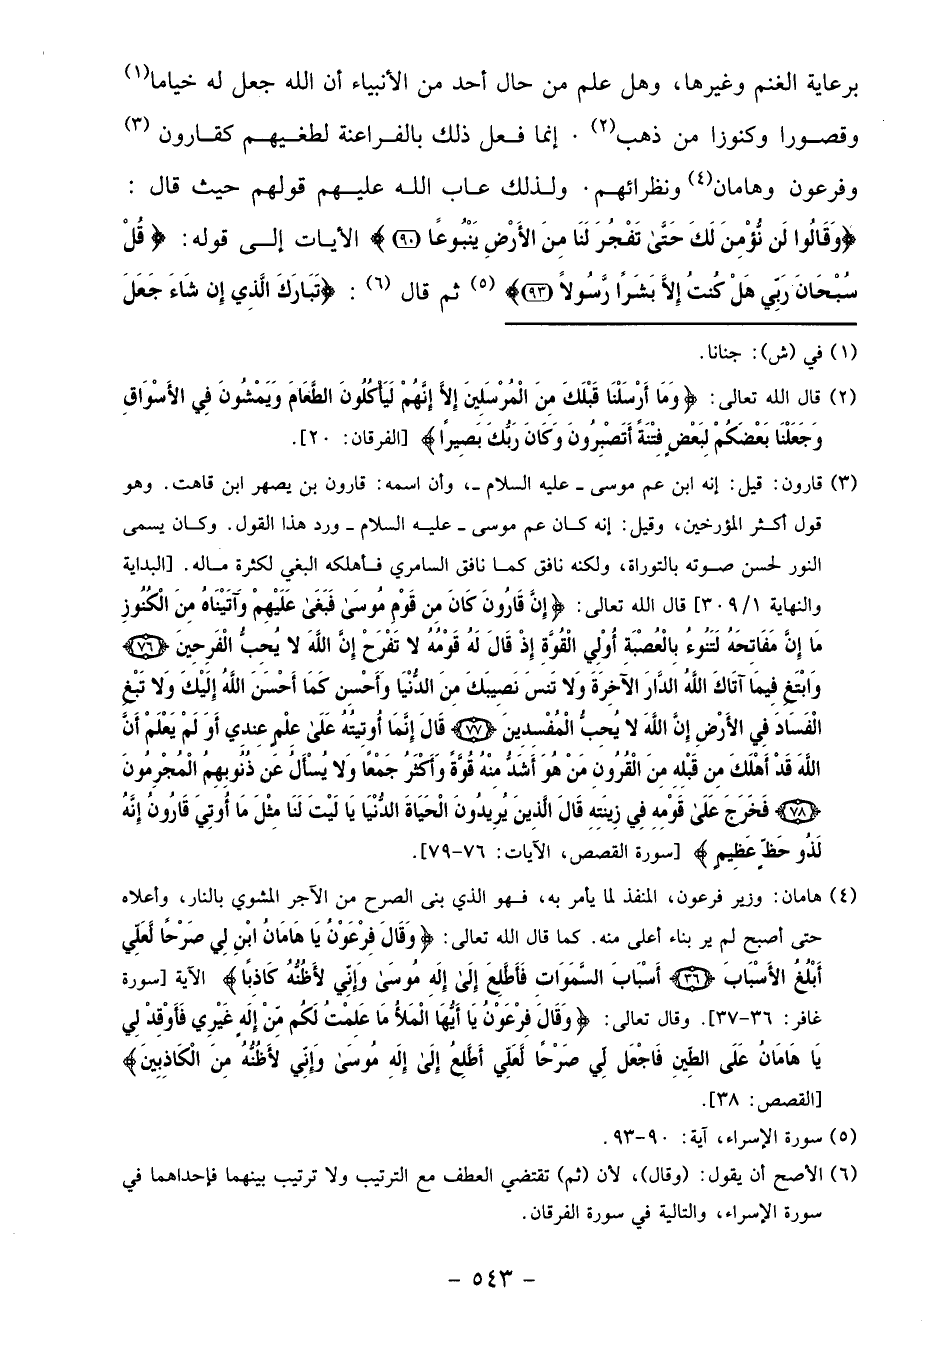 برعاية الغنم وغيرها، وهل علم من حال أحد من الأنبياء أن الله جعل له خياما(١)
وقصورا وكنوزا من ذهب(٢) . إنما فعل ذلك بالفراعنة لطغيهم كقارون (٣)
وفرعون وهامان(٤) ونظرائهم. ولذلك عاب الله عليهم قولهم حيث قال :
﴿وَقَالُوا لَن نُّؤْمِنَ لَكَ حَتَّىٰ تَفْجُرَ لَنَا مِنَ الأَرْضِ يَنْبُوعًا (٩٠)﴾ الآيات إلى قوله: ﴿قُلْ
سُبْحَانَ رَبِّي هَلْ كُنتُ إِلاَّ بَشَرًا رَّسُولاً (٩٣)﴾ (٥) ثم قال (٦) : ﴿تَبَارَكَ الَّذِي إِن شَاءَ جَعَلَ
(١) في (ش): جنانا.
(٢) قال الله تعالى: ﴿وَمَا أَرْسَلْنَا قَبْلَكَ مِنَ الْمُرْسَلِينَ إِلاَّ إِنَّهُمْ لَيَأْكُلُونَ الطَّعَامَ وَيَمْشُونَ فِي الأَسْوَاقِ
وَجَعَلْنَا بَعْضَكُمْ لِبَعْضٍ فِتْنَةً أَتَصْبِرُونَ وَكَانَ رَبُّكَ بَصِيرًا﴾ [الفرقان: ٢٠].
(٣) قارون: قيل: إنه ابن عم موسى ـ عليه السلام ـ، وأن اسمه: قارون بن يصهر ابن قاهت. وهو
قول أكثر المؤرخين، وقيل: إنه كان عم موسى ـ عليه السلام ـ ورد هذا القول. وكان يسمى
النور لحسن صوته بالتوراة، ولكنه نافق كما نافق السامري فأهلكه البغي لكثرة ماله. [البداية
والنهاية ٣٠٩/١] قال الله تعالى: ﴿إِنَّ قَارُونَ كَانَ مِن قَوْمِ مُوسَىٰ فَبَغَىٰ عَلَيْهِمْ وَآتَيْنَاهُ مِنَ الْكُنُوزِ
مَا إِنَّ مَفَاتِحَهُ لَتَنُوءُ بِالْعُصْبَةِ أُوْلِي الْقُوَّةِ إِذْ قَالَ لَهُ قَوْمُهُ لا تَفْرَحْ إِنَّ اللَّهَ لا يُحِبُّ الْفَرِحِينَ ﴿٧٦﴾
وَابْتَغِ فِيمَا آتَاكَ اللَّهُ الدَّارَ الآخِرَةَ وَلا تَنسَ نَصِيبَكَ مِنَ الدُّنْيَا وَأَحْسِن كَمَا أَحْسَنَ اللَّهُ إِلَيْكَ وَلا تَبْغِ
الْفَسَادَ فِي الأَرْضِ إِنَّ اللَّهَ لا يُحِبُّ الْمُفْسِدِينَ ﴿٧٧﴾ قَالَ إِنَّمَا أُوتِيتُهُ عَلَىٰ عِلْمٍ عِندِي أَوَ لَمْ يَعْلَمْ أَنَّ
اللَّهَ قَدْ أَهْلَكَ مِن قَبْلِهِ مِنَ الْقُرُونِ مَنْ هُوَ أَشَدُّ مِنْهُ قُوَّةً وَأَكْثَرُ جَمْعًا وَلا يُسْأَلُ عَن ذُنُوبِهِمُ الْمُجْرِمُونَ
﴿٧٨﴾ فَخَرَجَ عَلَىٰ قَوْمِهِ فِي زِينَتِهِ قَالَ الَّذِينَ يُرِيدُونَ الْحَيَاةَ الدُّنْيَا يَا لَيْتَ لَنَا مِثْلَ مَا أُوتِيَ قَارُونُ إِنَّهُ
لَذُو حَظٍّ عَظِيمٍ﴾ [سورة القصص، الآيات: ٧٦-٧٩].
(٤) هامان: وزير فرعون، المنفذ لما يأمر به، فهو الذي بنى الصرح من الآجر المشوي بالنار، وأعلاه
حتى أصبح لم ير بناء أعلى منه. كما قال الله تعالى: ﴿وَقَالَ فِرْعَوْنُ يَا هَامَانُ ابْنِ لِي صَرْحًا لَّعَلِّي
أَبْلُغُ الأَسْبَابَ ﴿٣٦﴾ أَسْبَابَ السَّمَوَاتِ فَأَطَّلِعَ إِلَىٰ إِلَهِ مُوسَىٰ وَإِنِّي لأَظُنُّهُ كَاذِبًا﴾ الآية [سورة
غافر: ٣٦-٣٧]. وقال تعالى: ﴿وَقَالَ فِرْعَوْنُ يَا أَيُّهَا الْمَلأُ مَا عَلِمْتُ لَكُم مِّنْ إِلَهٍ غَيْرِي فَأَوْقِدْ لِي
يَا هَامَانُ عَلَى الطِّينِ فَاجْعَل لِّي صَرْحًا لَّعَلِّي أَطَّلِعُ إِلَىٰ إِلَهِ مُوسَىٰ وَإِنِّي لأَظُنُّهُ مِنَ الْكَاذِبِينَ﴾
[القصص: ٣٨].
(٥) سورة الإسراء، آية: ٩٠-٩٣.
(٦) الأصح أن يقول: (وقال)، لأن (ثم) تقتضي العطف مع الترتيب ولا ترتيب بينهما فإحداهما في
سورة الإسراء، والتالية في سورة الفرقان.
- ٥٤٣ -